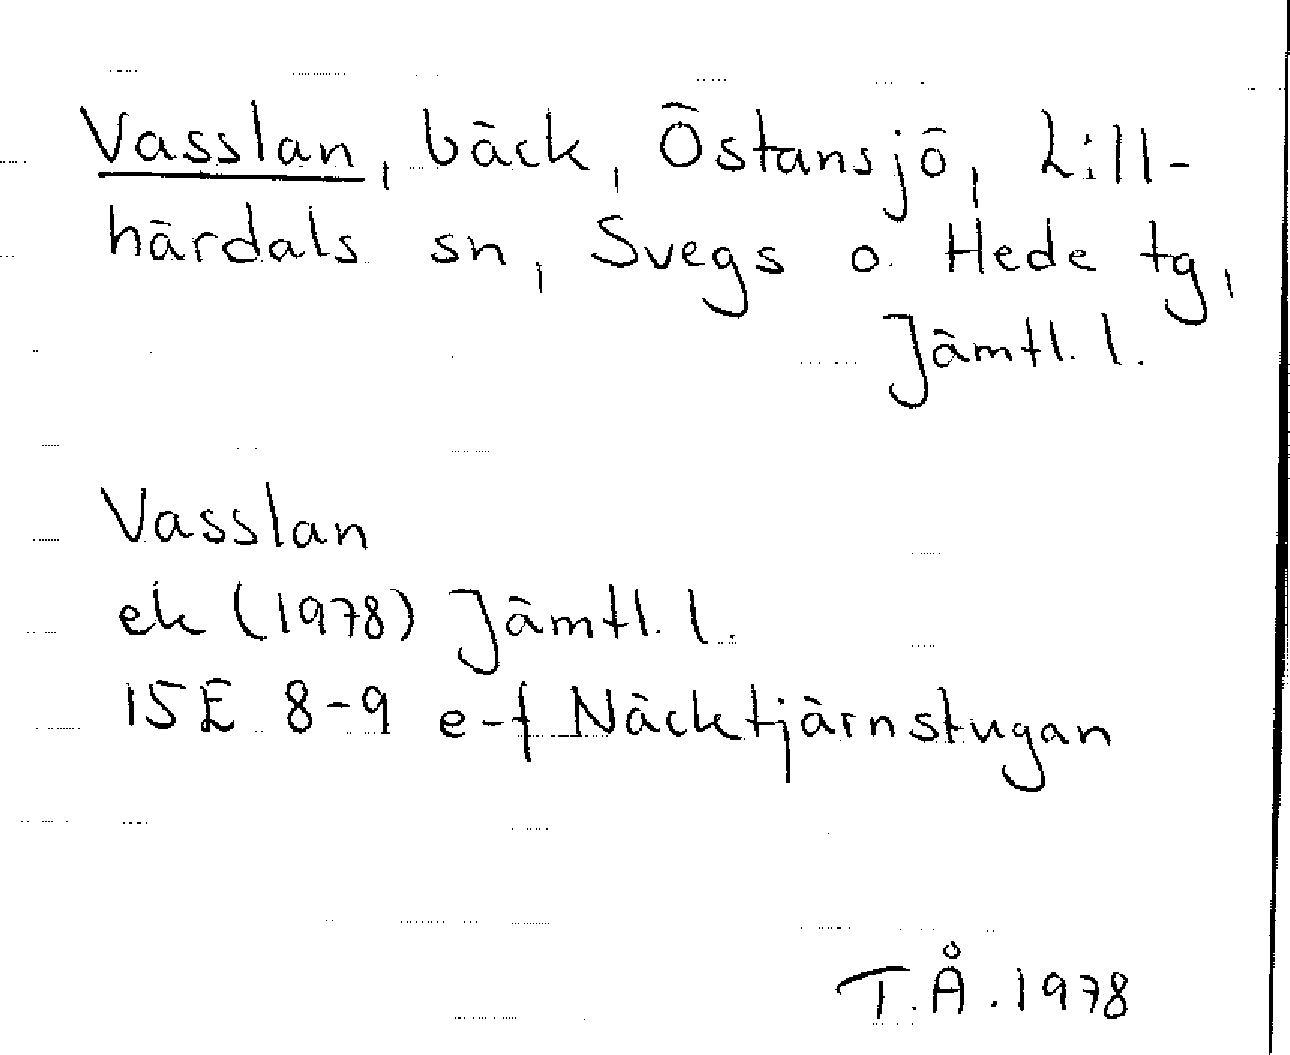 Vasslan, bäck, Östansjö, Lill-
härdals sn, Svegs o. Hede tg,
Jämtl. l.
Vasslan
ek (1978) Jämtl. l.
15E 8-9 e-f Näcktjärnstugan
T.Å. 1978